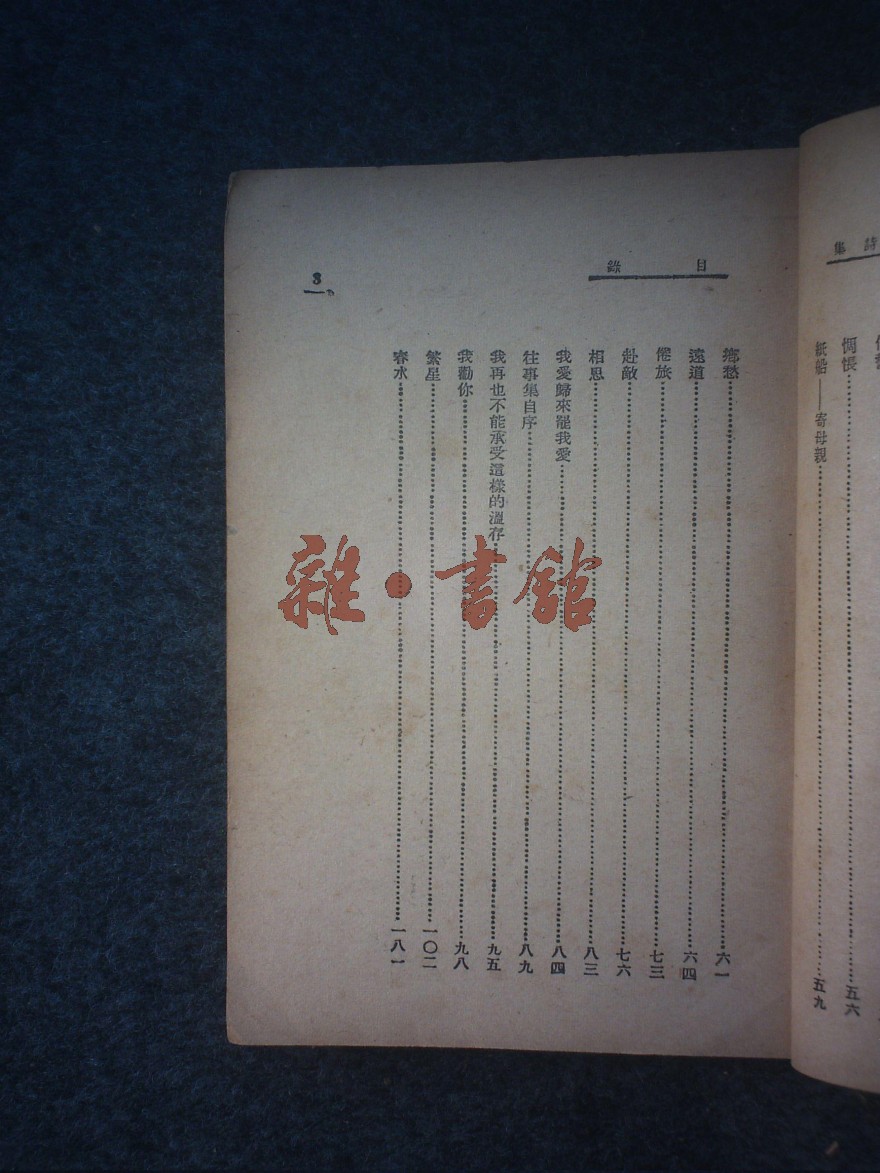 詩集
惆悵……五六
紙船——寄母親……五九
目錄
3
鄉愁……六一
遠道……六四
倦旅……七三
赴敵……七六
相思……八三
我愛歸來罷我愛……八四
往事集自序……八九
我再也不能承受這樣的溫存……九五
我勸你……九八
繁星……一〇二
春水……一八一
雜·書館